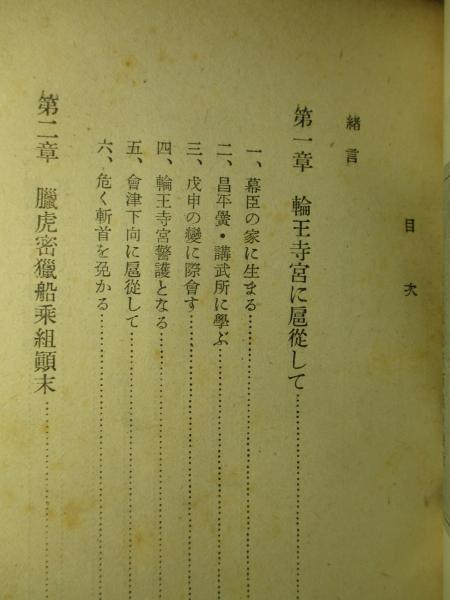 目次
緒言
第一章 輪王寺宮に扈從して
一、幕臣の家に生まる
二、昌平黌・講武所に學ぶ
三、戊申の變に際會す
四、輪王寺宮警護となる
五、會津下向に扈從して
六、危く斬首を免かる
第二章 臘虎密獵船乘組顚末